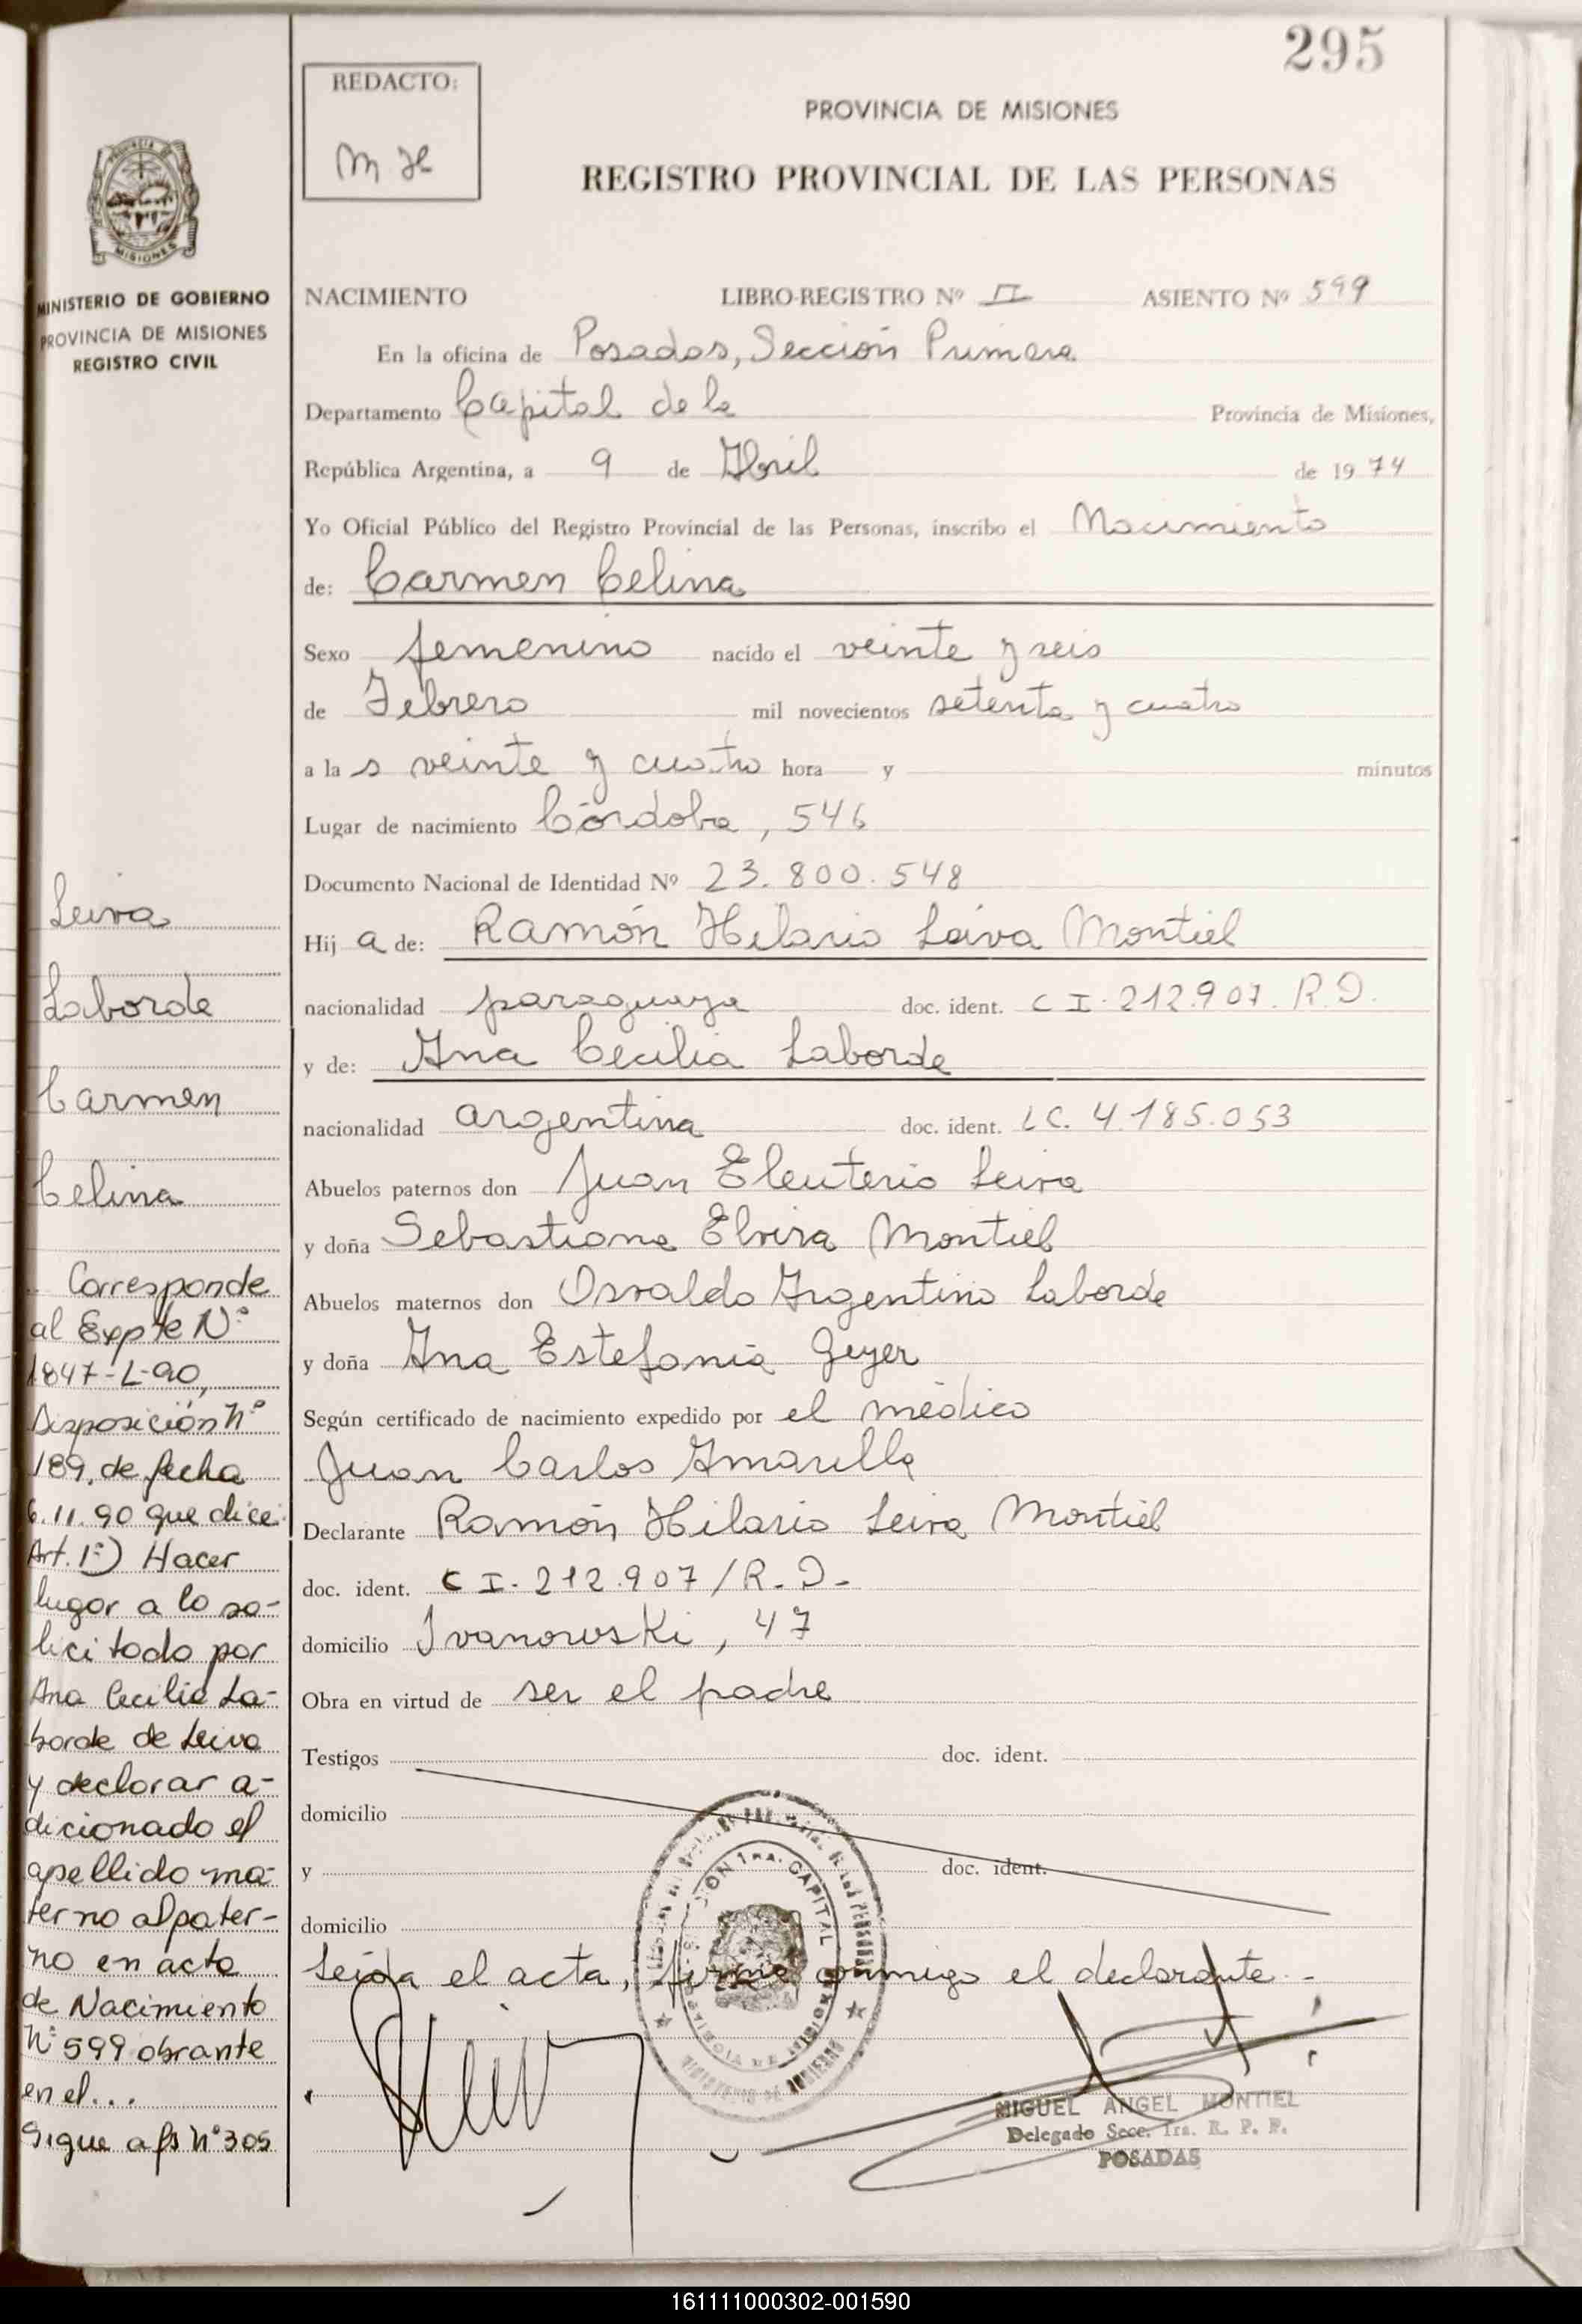 295
REDACTO:
M. H
PROVINCIA DE MISIONES
REGISTRO PROVINCIAL DE LAS PERSONAS
MISIONES
MINISTERIO DE GOBIERNO
PROVINCIA DE MISIONES
REGISTRO CIVIL
NACIMIENTO LIBRO-REGISTRO Nº II ASIENTO Nº 599
En la oficina de Posadas, Sección Primera
Departamento Capital de la Provincia de Misiones,
República Argentina, a 9 de Abril de 1974
Yo Oficial Público del Registro Provincial de las Personas, inscribo el Nacimiento
de: Carmen Celina
Sexo femenino nacido el veinte y seis
de Febrero mil novecientos setenta y cuatro
a la s veinte y cuatro hora y minutos
Lugar de nacimiento Córdoba, 546
Documento Nacional de Identidad Nº 23.800.548
Hij a de: Ramón Hilario Leiva Montiel
nacionalidad paraguaya doc. ident. C I. 212.907. R.D.
y de: Ana Cecilia Laborde
nacionalidad argentina doc. ident. LC. 4.185.053
Abuelos paternos don Juan Eleuterio Leiva
y doña Sebastiana Elvira Montiel
Abuelos maternos don Osvaldo Argentino Laborde
y doña Ana Estefania Geyer
Según certificado de nacimiento expedido por el médico
Juan Carlos Amarilla
Declarante Ramón Hilario Leiva Montiel
doc. ident. C I. 212.907/R.D-
domicilio Ivanowski, 47
Obra en virtud de ser el padre
Testigos doc. ident.
domicilio
y doc. ident.
domicilio
Leída el acta, firma conmigo el declarante.-
MIGUEL ANGEL MONTIEL
Delegado Secc. 1ra. R. P. P.
POSADAS
Leiva
Laborde
Carmen
Celina
Corresponde
al Expte Nº
1847-L-90,
Disposición Nº
189, de fecha
6.11.90 que dice:
Art. 1º) Hacer
lugar a lo so-
licitado por
Ana Cecilia La-
borde de Leiva
y declarar a-
dicionado el
apellido ma-
terno al pater-
no en acta
de Nacimiento
Nº 599 obrante
en el...
Sigue a fs Nº 305
161111000302-001590